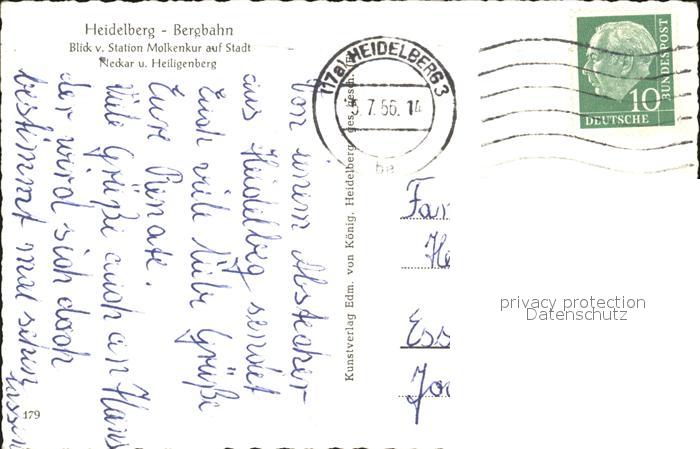 Heidelberg - Bergbahn
Blick v. Station Molkenkur auf Stadt
Neckar u. Heiligenberg
Von einem Abstecher
aus Heidelberg sendet
Euch viele liebe Grüße
Eure Renate.
Viele Grüße auch an Hans
der wird sich doch
bestimmt mal sehen
lassen
179
Kunstverlag Edm. von König, Heidelberg, des. gesch.
(17a) HEIDELBERG 3
5. 7. 56. 14
ba
10
DEUTSCHE
BUNDESPOST
Fam
He
Ess
privacy protection
Datenschutz